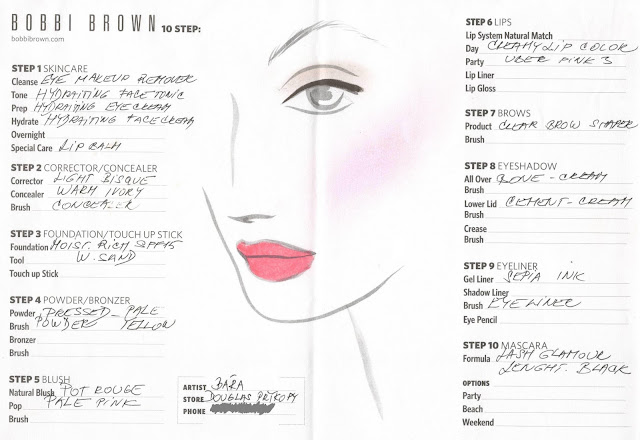 BOBBI BROWN 10 STEP:
bobbibrown.com
STEP 1 SKINCARE
Cleanse EYE MAKEUP REMOVER
Tone HYDRAITING FACE TONIC
Prep HYDRAITING EYE CREAM
Hydrate HYDRAITING FACE CREAM
Overnight
Special Care LIP BALM
STEP 2 CORRECTOR/CONCEALER
Corrector LIGHT BISQUE
Concealer WARM IVORY
Brush CONCEALER
STEP 3 FOUNDATION/TOUCH UP STICK
Foundation MOIST. RICH SPF15
Tool W. SAND
Touch up Stick
STEP 4 POWDER/BRONZER
Powder PRESSED - PALE
Brush POWDER YELLOW
Bronzer
Brush
STEP 5 BLUSH
Natural Blush POT ROUGE
Pop PALE PINK
Brush
ARTIST BÁRA
STORE DOUGLAS PŘÍKOPY
PHONE
STEP 6 LIPS
Lip System Natural Match
Day CREAMY LIP COLOR
Party UBER PINK 3
Lip Liner
Lip Gloss
STEP 7 BROWS
Product CLEAR BROW SHAPER
Brush
STEP 8 EYESHADOW
All Over BONE - CREAM
Brush
Lower Lid CEMENT - CREAM
Brush
Crease
Brush
STEP 9 EYELINER
Gel Liner SEPIA INK
Shadow Liner
Brush EYELINER
Eye Pencil
STEP 10 MASCARA
Formula LASH GLAMOUR
LENGHT. BLACK
OPTIONS
Party
Beach
Weekend